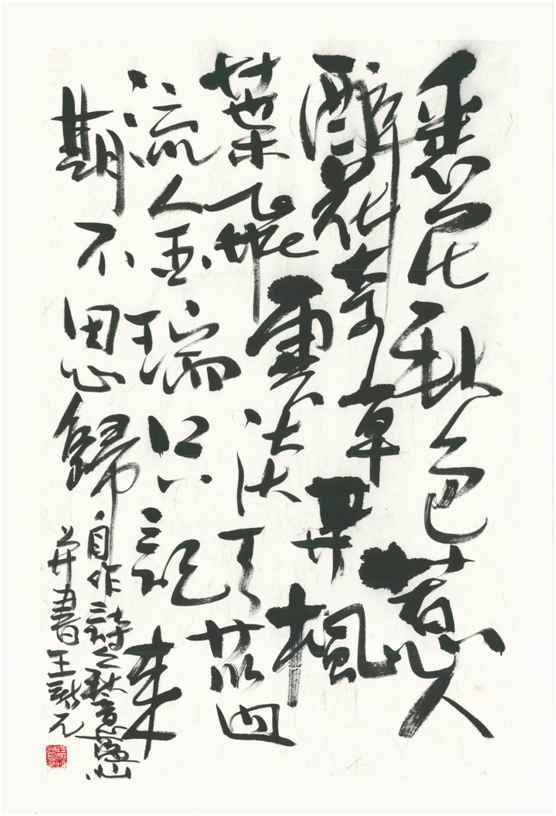 悉尼秋色惹人
醉花奇草异楓
葉飛雲淡天藍
流金瑞只記来
期不思歸
自作詩之秋意
并書王元